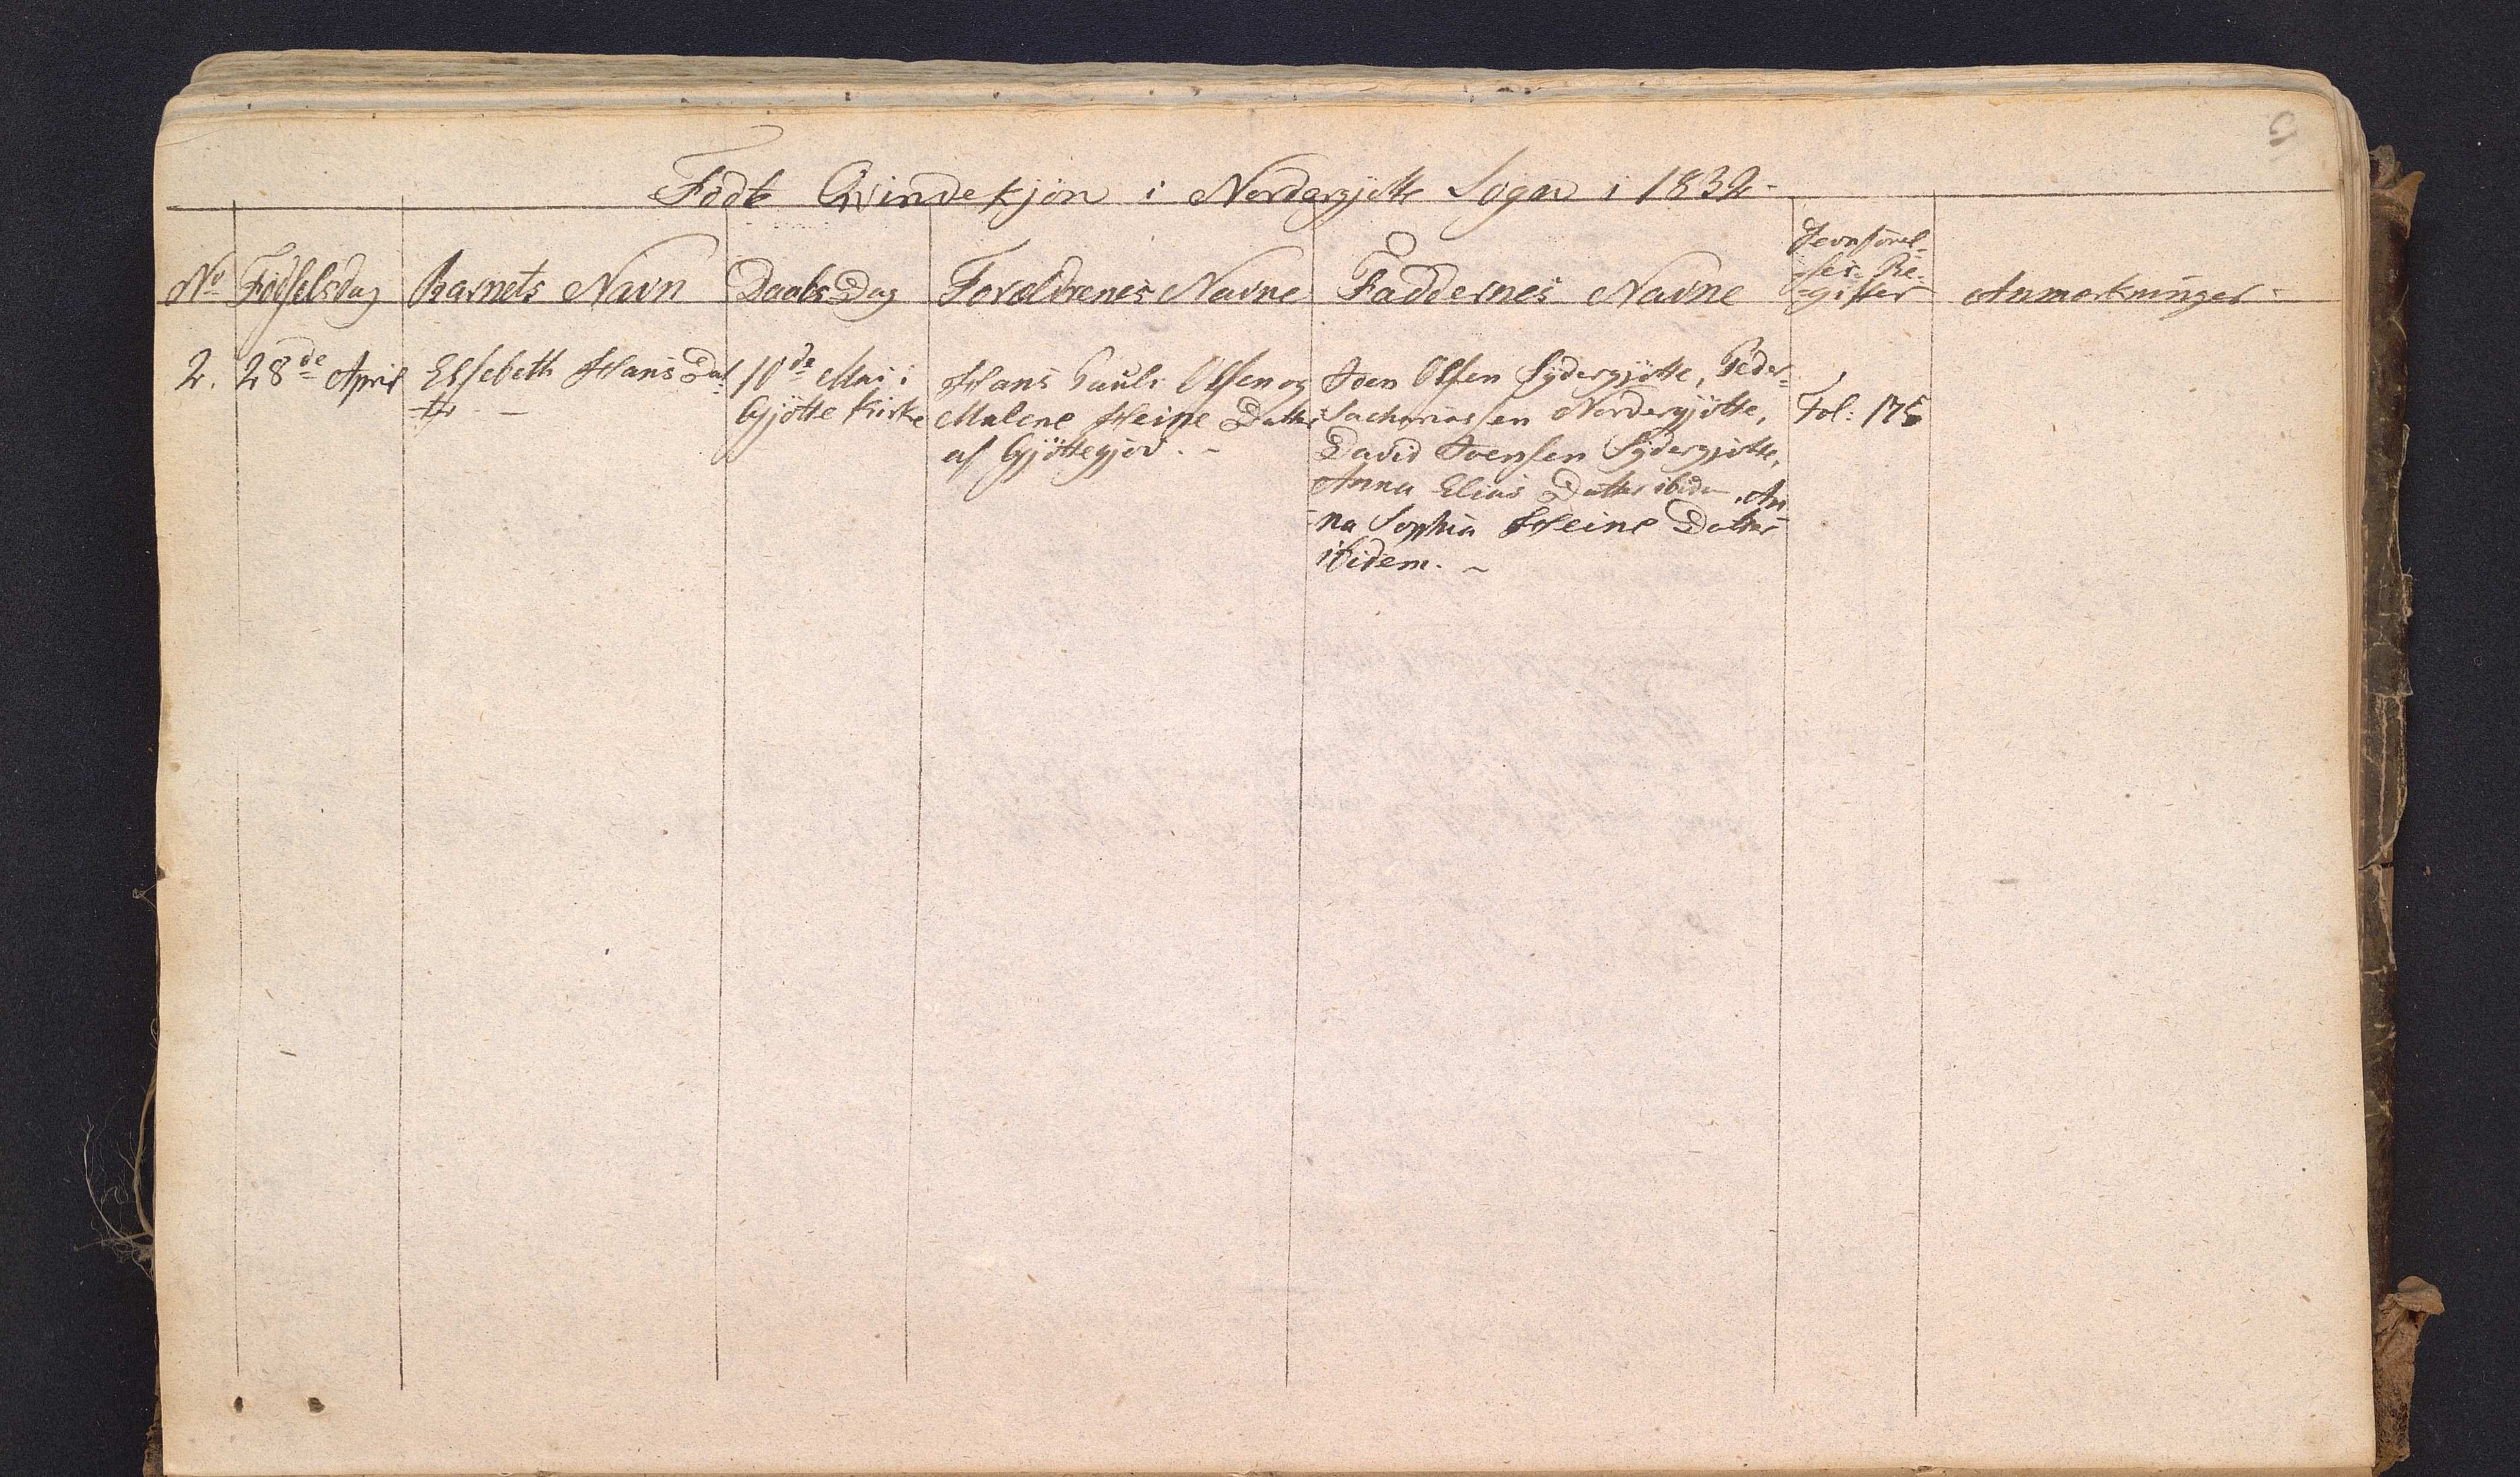 9
Födt Qvindekjön i Nordergjötte Sogn i 1832-
No Födselsdag Barnets Navn Daabs Dag Forældrenes Navne Faddernes Navne Jevnförel-
ses-Re-
gister Anmærkninger-
2. 28de April Elsebeth Hans Dat-
-ter -
10de Mai i
Gjötte Kirke
Hans Pauli Olsen og
Malene Heine Datter
af Gjöttegjov. -
Joen Olsen Sydergjötte, Peder
Sachariassen Nordergjötte,
David Joensen Sydergjötte,
Anna Elias Datter ibidem, An-
-na Sophia Heine Datter
ibidem. -
Fol: 175